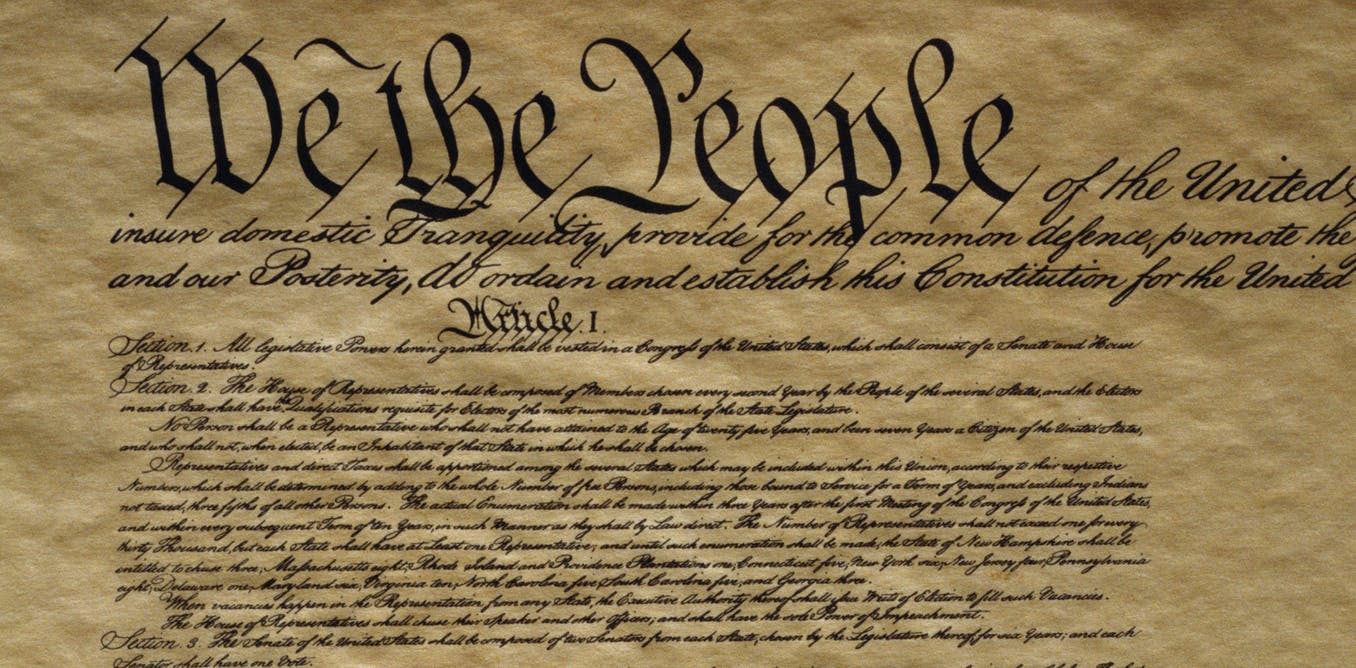 We the People of the United
insure domestic Tranquility, provide for the common defence, promote the
and our Posterity, do ordain and establish this Constitution for the United
Article. I.
Section. 1. All legislative Powers herein granted shall be vested in a Congress of the United States, which shall consist of a Senate and House
of Representatives.
Section. 2. The House of Representatives shall be composed of Members chosen every second Year by the People of the several States, and the Electors
in each State shall have the Qualifications requisite for Electors of the most numerous Branch of the State Legislature.
No Person shall be a Representative who shall not have attained to the Age of twenty five Years, and been seven Years a Citizen of the United States,
and who shall not, when elected, be an Inhabitant of that State in which he shall be chosen.
Representatives and direct Taxes shall be apportioned among the several States which may be included within this Union, according to their respective
Numbers, which shall be determined by adding to the whole Number of free Persons, including those bound to Service for a Term of Years, and excluding Indians
not taxed, three fifths of all other Persons. The actual Enumeration shall be made within three Years after the first Meeting of the Congress of the United States,
and within every subsequent Term of ten Years, in such Manner as they shall by Law direct. The Number of Representatives shall not exceed one for every
thirty Thousand, but each State shall have at Least one Representative; and until such enumeration shall be made, the State of New Hampshire shall be
entitled to chuse three, Massachusetts eight, Rhode Island and Providence Plantations one, Connecticut five, New York six, New Jersey four, Pennsylvania
eight, Delaware one, Maryland six, Virginia ten, North Carolina five, South Carolina five, and Georgia three.
When vacancies happen in the Representation from any State, the Executive Authority thereof shall issue Writs of Election to fill such Vacancies.
The House of Representatives shall chuse their Speaker and other Officers; and shall have the sole Power of Impeachment.
Section. 3. The Senate of the United States shall be composed of two Senators from each State, chosen by the Legislature thereof, for six Years; and each
Senator shall have one Vote.